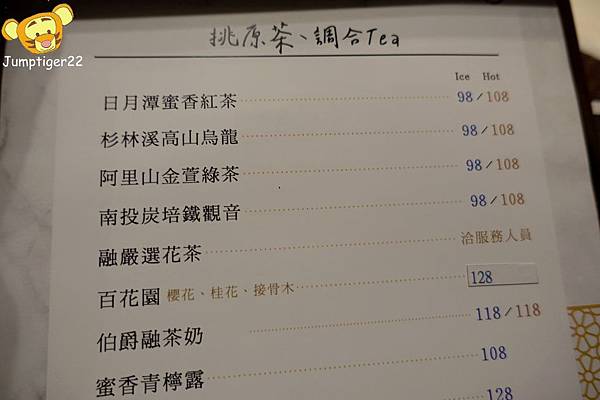 Jumptiger22
挑原茶、調合Tea
Ice Hot
日月潭蜜香紅茶 98/108
杉林溪高山烏龍 98/108
阿里山金萱綠茶 98/108
南投炭培鐵觀音 98/108
融嚴選花茶 洽服務人員
百花園 櫻花、桂花、接骨木 128
伯爵融茶奶 118/118
蜜香青檸露 108
128